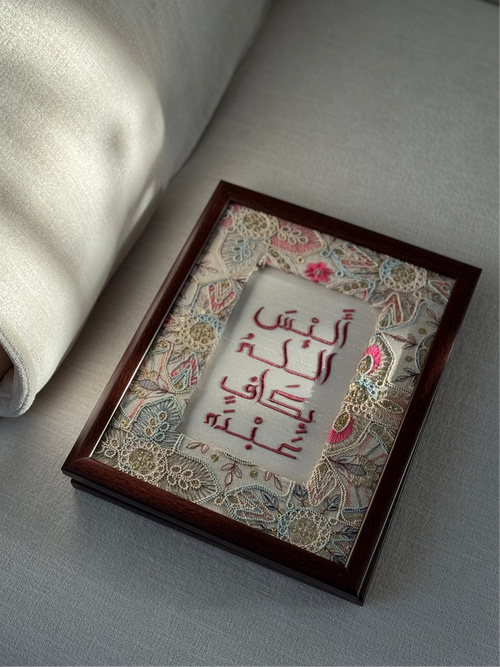 أَلَيْسَ
اللهُ
بِكَافٍ
عَبْدَهُ